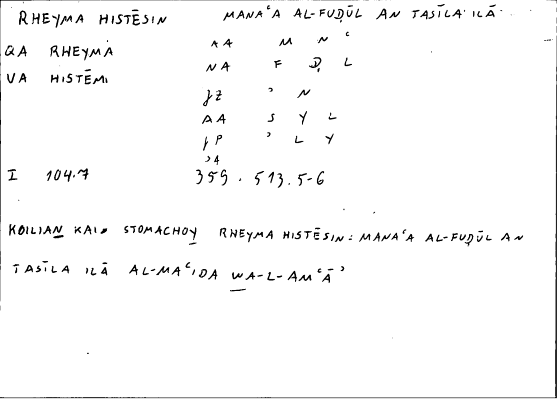 RHEYMA HISTĒSIN MANAʿA AL-FUḌŪL AN TASĪLA ILĀ
QA RHEYMA AA M N ʿ
VA HISTĒMI NA F Ḍ L
JZ ʾ N
AA S Y L
JP ʾ L Y
ʾ4
I 104.7 359.513.5-6
KOILIAN KAI STOMACHOY RHEYMA HISTĒSIN: MANAʿA AL-FUḌŪL AN
TASĪLA ILĀ AL-MAʿIDA WA-L-AMʿĀʾ